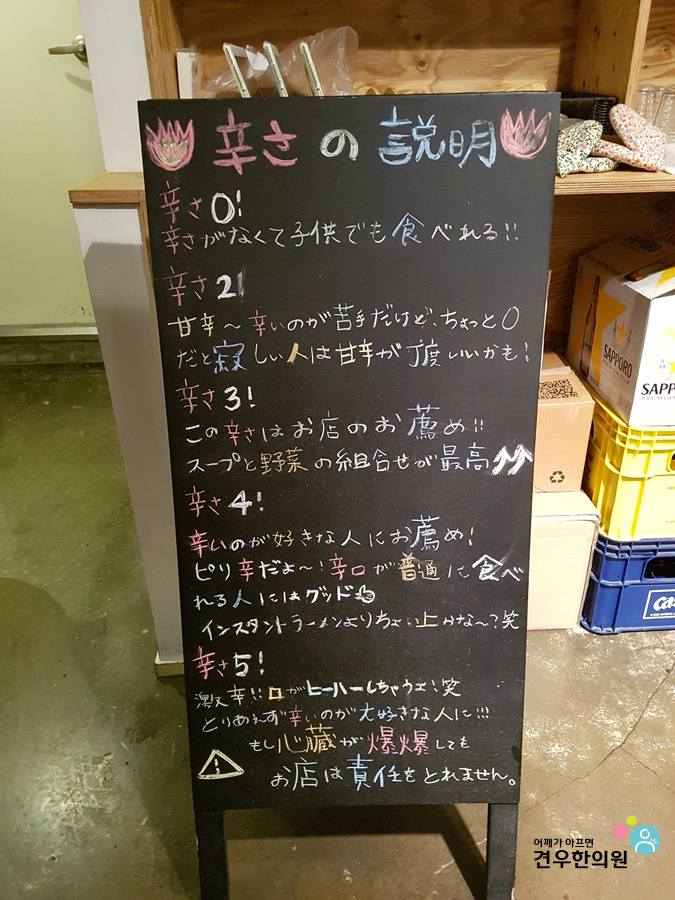 辛さの説明
辛さ0!
辛さがなくて子供でも食べれる!!
辛さ2!
甘辛〜辛いのが苦手だけど、ちょっと0
だと寂しい人は甘辛が丁度いいかも!
辛さ3!
この辛さはお店のお薦め!!
スープと野菜の組合せが最高
辛さ4!
辛いのが好きな人にお薦め!
ピリ辛だよ〜!辛口が普通に食べ
れる人にはグッド
インスタントラーメンよりちょい上かな〜?笑
辛さ5!
激辛!!口がヒーハーしちゃうよ!笑
とりあえず辛いのが大好きな人に!!!
もし心臓が爆爆しても
お店は責任をとれません。
SAPPORO
SAPPORO
어깨가 아프면
견우한의원